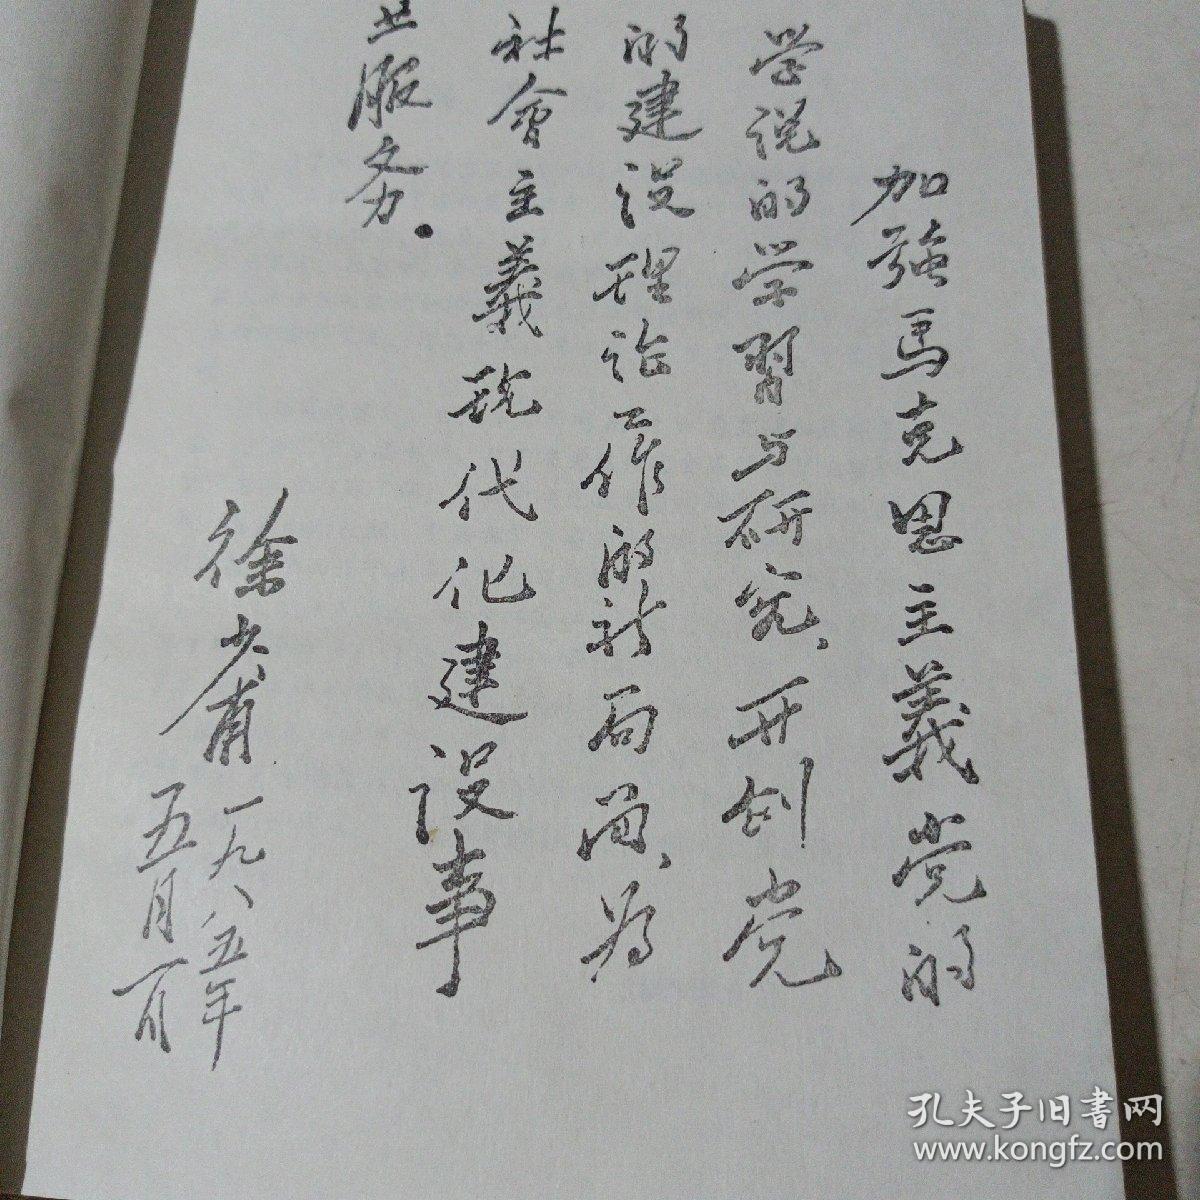 加強马克思主義党的
学说的学習与研究、开创党
的建设理论工作的新局面、为
社會主義现代化建设事
业服务.
徐少甫
一九八五年
五月一日
孔夫子旧書网
www.kongfz.com